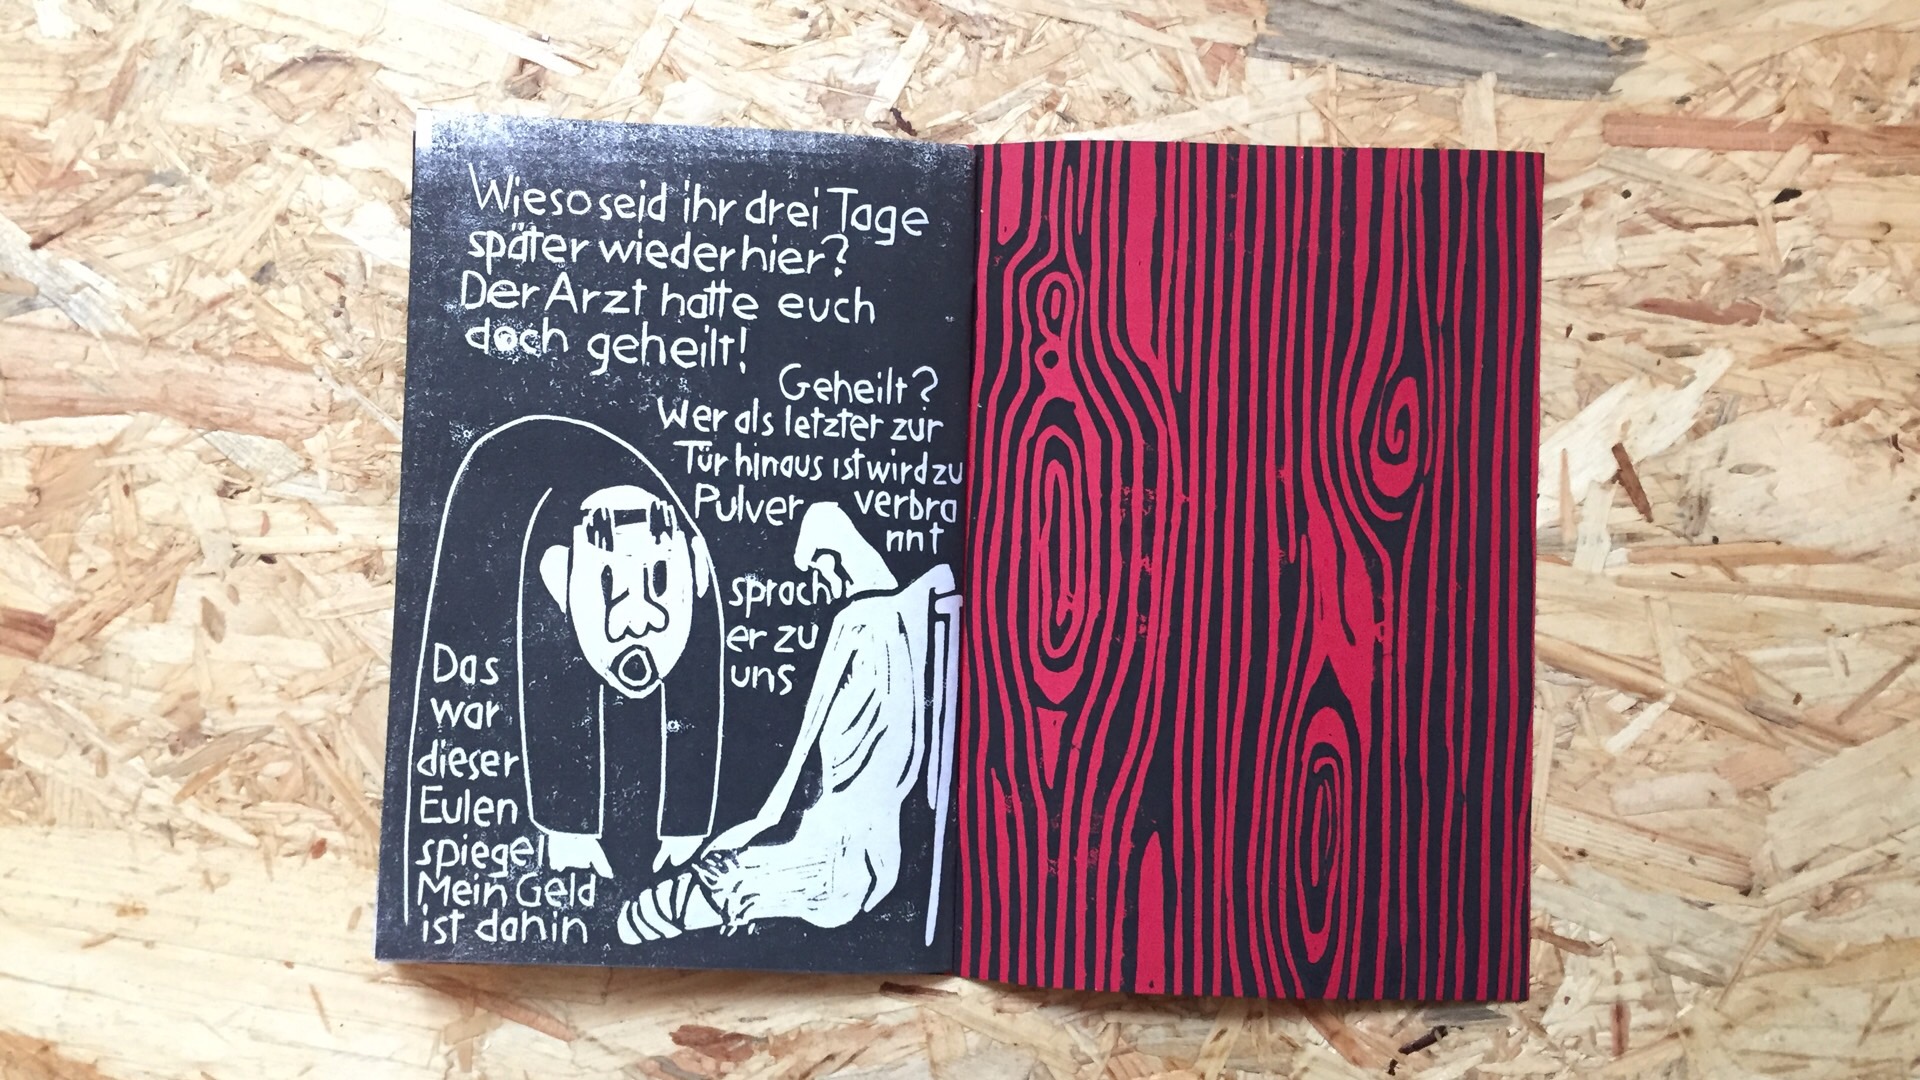 Wieso seid ihr drei Tage
später wieder hier?
Der Arzt hatte euch
doch geheilt!
Geheilt?
Wer als letzter zur
Tür hinaus ist wird zu
Pulver verbra
nnt
sprach
er zu
uns
Das
war
dieser
Eulen
spiegel
Mein Geld
ist dahin